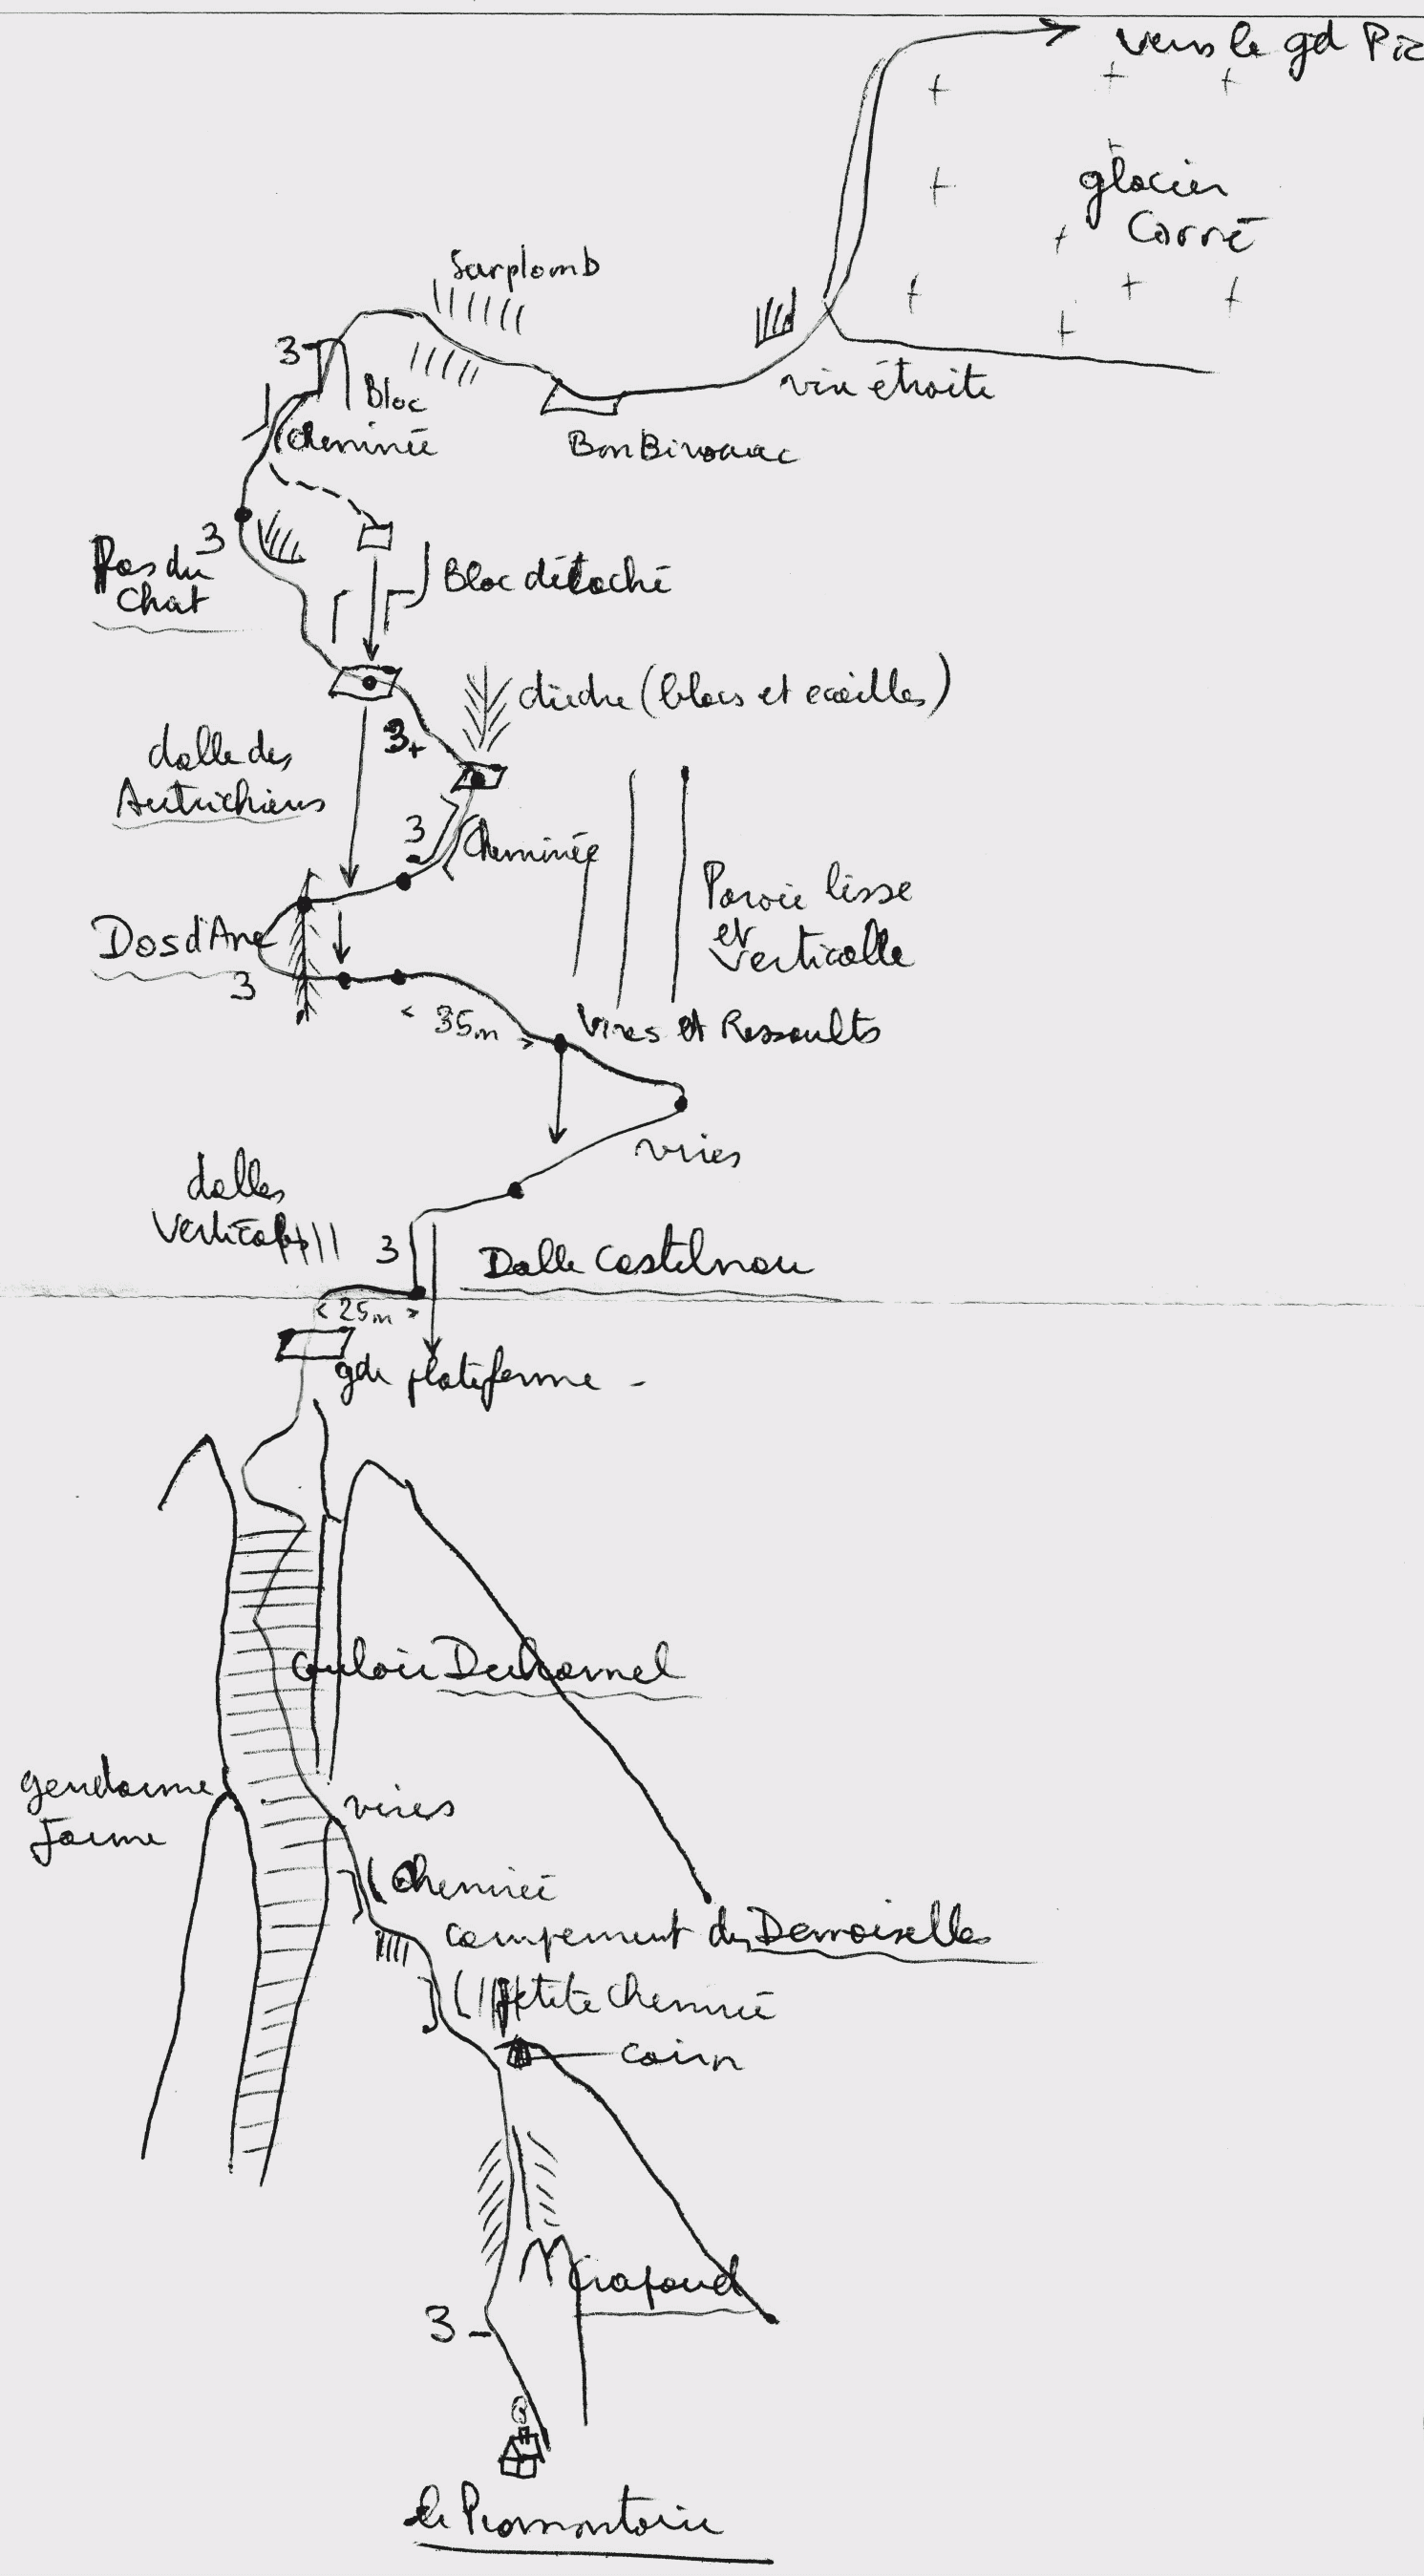 vers le gd Pic
glacier
Carré
Surplomb
3
Bloc
vire étroite
Cheminée
Bon Bivouac
3
Pas du
Chat
Bloc détaché
dièdre (blocs et ecailles)
3+
dalle des
Autrichiens
3
Cheminée
Paroie lisse
et
verticalle
Dos d'Ane
3
< 35m >
Vires et Ressaults
vires
dalles
Verticales
3
Dalle Castelnau
< 25m >
gde plateforme -
Couloir Duhamel
gendarme
Jaune
vires
Cheminée
campement des Demoiselles
petite cheminée
cairn
Crapaud
3
le Promontoire